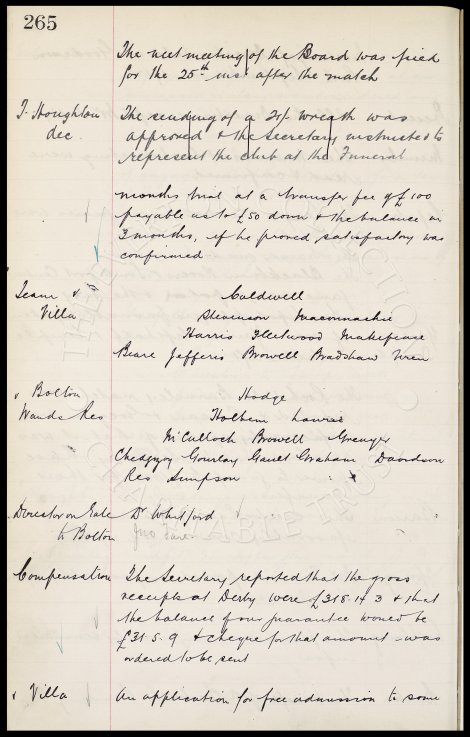 265
The next meeting of the Board was fixed
for the 25th inst after the match
T. Houghton dec.
The sending of a 20/- wreath was
approved & the Secretary instructed to
represent the club at the Funeral
months trial at a transfer fee of £100
payable as to £50 down & the balance in
3 months, if he proved satisfactory was
confirmed
Team v Villa
Caldwell
Stevenson Maconnachie
Harris Fleetwood Makepeace
Beare Jefferis Browell Bradshaw Wren
v Bolton Wands Res
Hodge
Holbem Lawrie
McCulloch Browell Grenyer
Chedgzoy Gourlay Gault Graham Davidson
Res Simpson
Director on Gate to Bolton
Dr Whitford
Compensation
The Secretary reported that the gross
receipts at Derby were £318.14.3 & that
the balance of our guarantee would be
£31.5.9 & cheque for that amount was
ordered to be sent
v Villa
An application for free admission to some